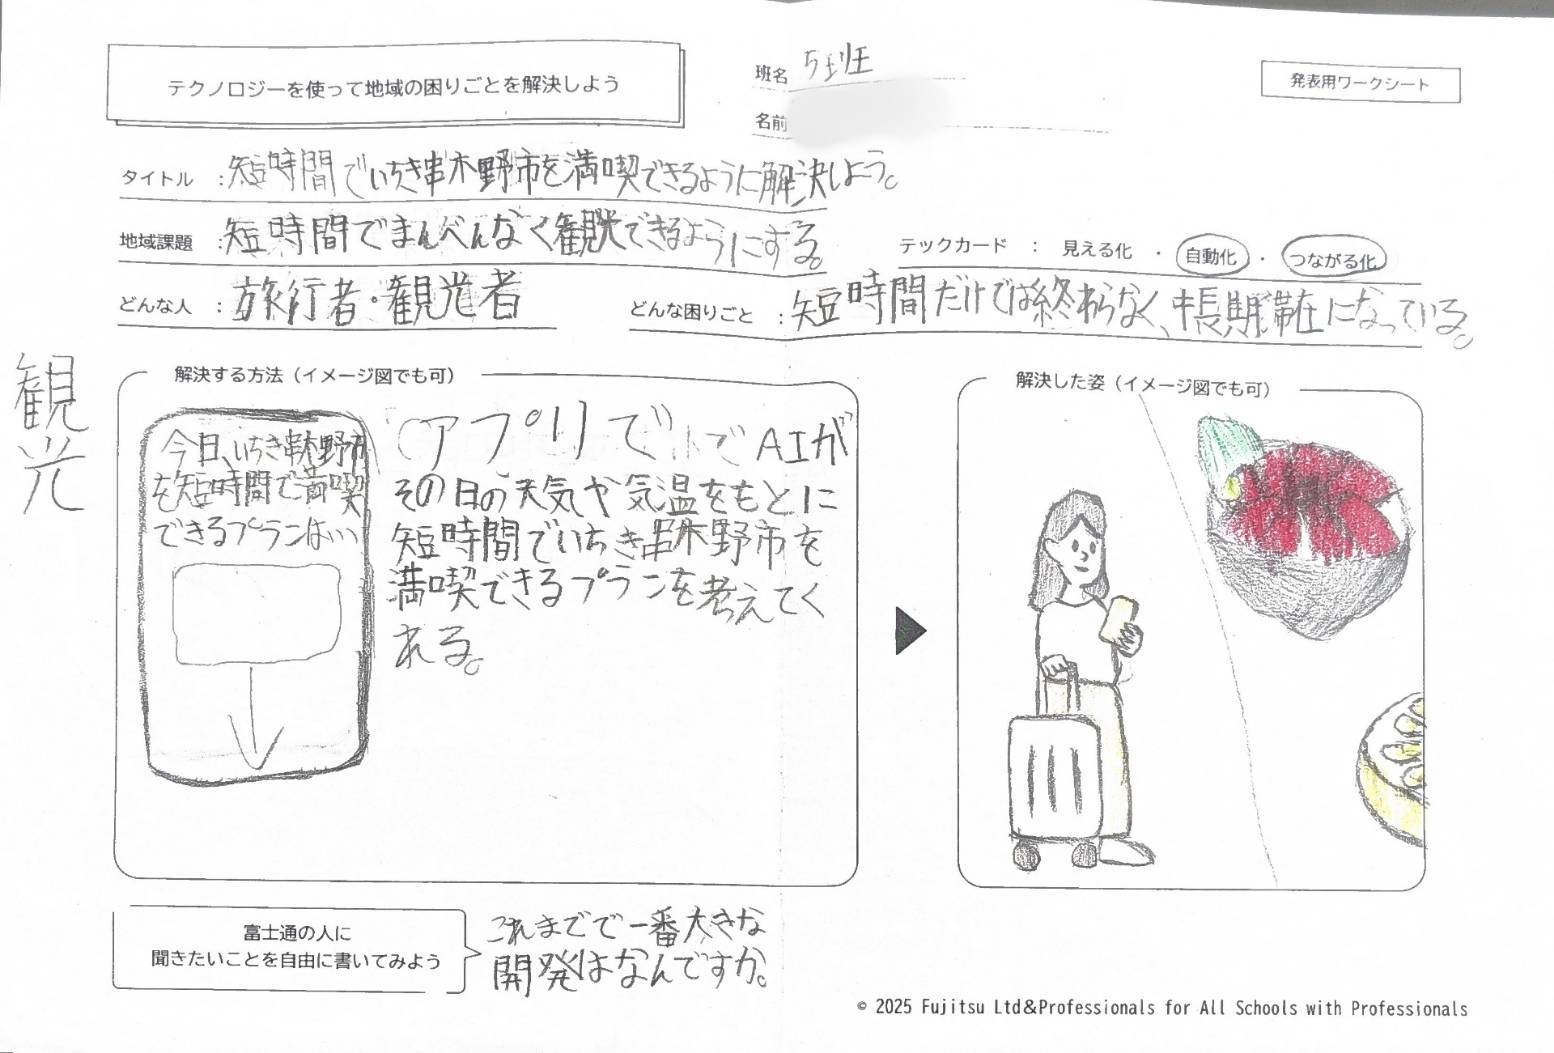 テクノロジーを使って地域の困りごとを解決しよう
班名 5班
名前
発表用ワークシート
タイトル :短時間でいちき串木野市を満喫できるように解決しよう。
地域課題 :短時間でまんべんなく観光できるようにする。
テックカード : 見える化 ・ 自動化 ・ つながる化
どんな人 :旅行者・観光者
どんな困りごと :短時間だけでは終わらなく、長期滞在になっている。
観光
解決する方法(イメージ図でも可)
今日、いちき串木野市
を短時間で満喫
できるプランはい
アプリで でAIが
その日の天気や気温をもとに
短時間でいちき串木野市を
満喫できるプランを考えてく
れる。
解決した姿(イメージ図でも可)
富士通の人に
聞きたいことを自由に書いてみよう
これまでで一番大きな
開発はなんですか。
© 2025 Fujitsu Ltd&Professionals for All Schools with Professionals